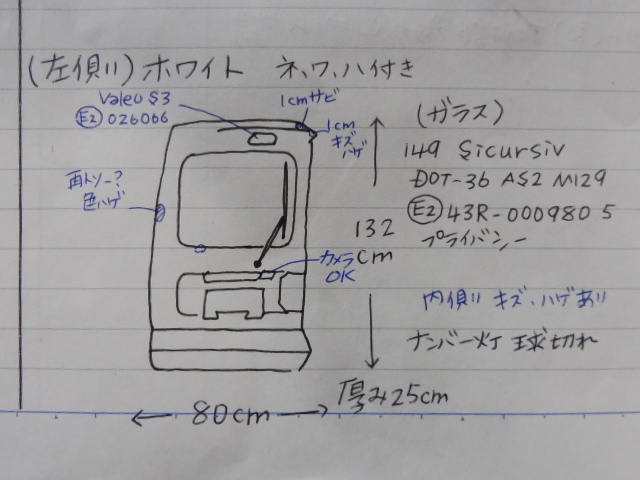 (左側) ホワイト ネ、ワ、ハ付き
Valeo S3
E2 026066
1cmサビ
1cm
キズ
ハゲ
(ガラス)
149 Sicursiv
DOT-36 AS2 M129
E2 43R-000980 5
プライバシー
再トソー?
色ハゲ
132
cm
カメラ
OK
内側 キズ、ハゲあり
ナンバー灯 球切れ
厚み25cm
80cm